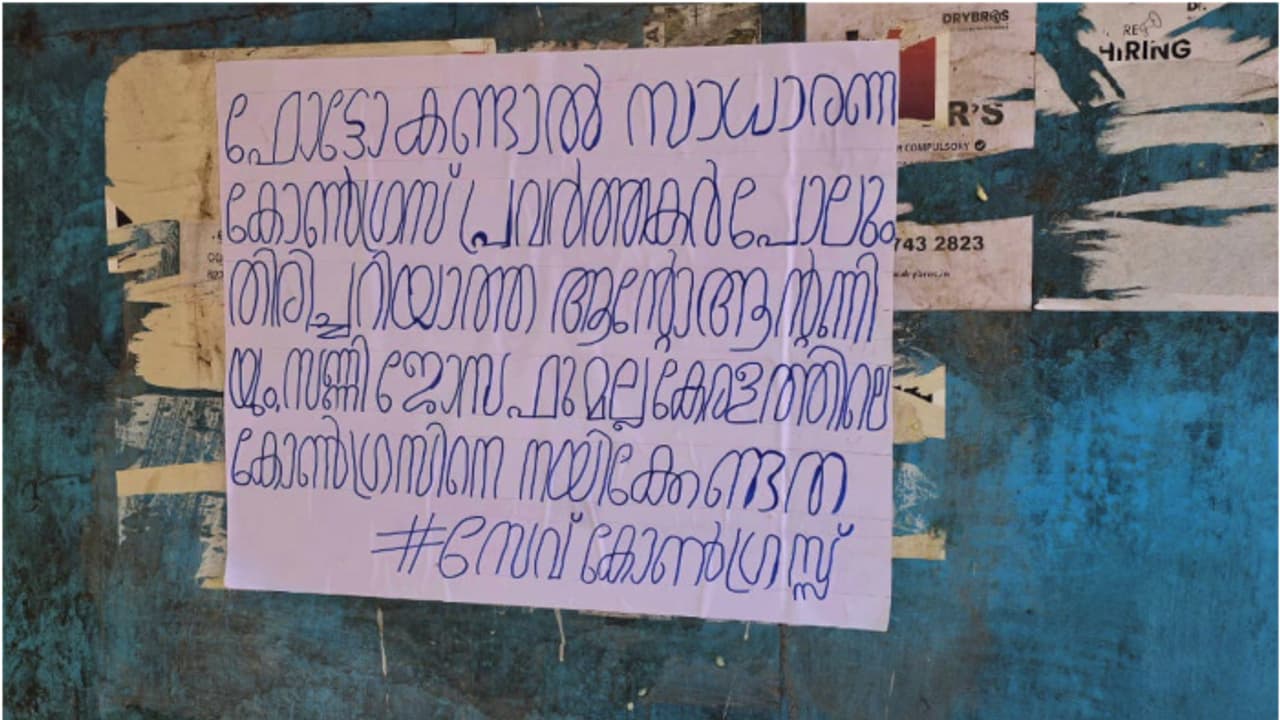 ഫോട്ടോ കണ്ടാൽ സാധാരണ
കോൺഗ്രസ് പ്രവർത്തകർ പോലും
തിരിച്ചറിയാത്ത ആന്റോആന്റണി
യും, സണ്ണി ജോസഫുമല്ല കേരളത്തിലെ
കോൺഗ്രസിനെ നയിക്കേണ്ടത
#സേവ് കോൺഗ്രസ്സ്
DRYBROS
R'S
COMPULSORY
743 2823
HIRING